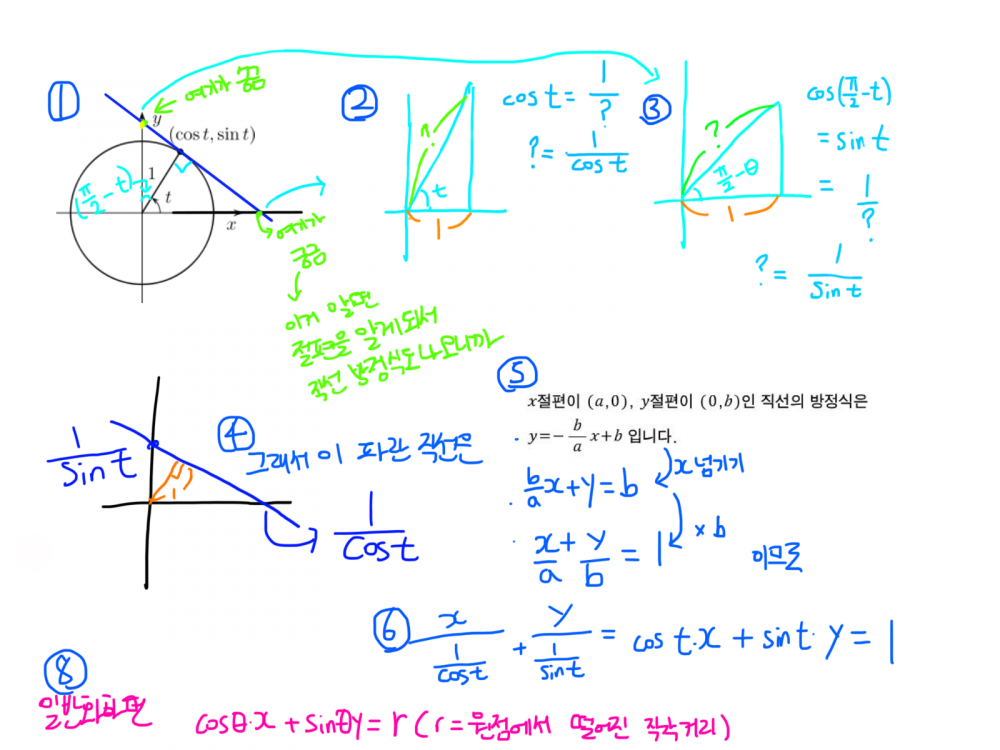 ①
여기가 궁금
y
(cos t, sin t)
1
t
(π/2 - t)
x
여기가
궁금
이거 알면
절편을 알게되서
직선 방정식도 나오니까
②
cos t = 1/?
? = 1/cos t
?
t
1
③
cos(π/2 - t)
= sin t
= 1/?
? = 1/sin t
?
π/2 - θ
1
④
그래서 이 파란 직선은
1/sin t
1
1/cos t
⑤
x절편이 (a,0), y절편이 (0,b)인 직선의 방정식은
y=-b/a x+b 입니다.
x 넘기기
b/a x + y = b
× b
x/a + y/b = 1
이므로
⑥
x/(1/cos t) + y/(1/sin t) = cos t·x + sin t·y = 1
⑧
일반화하면
cosθ·x + sinθy = r (r = 원점에서 떨어진 직각거리)